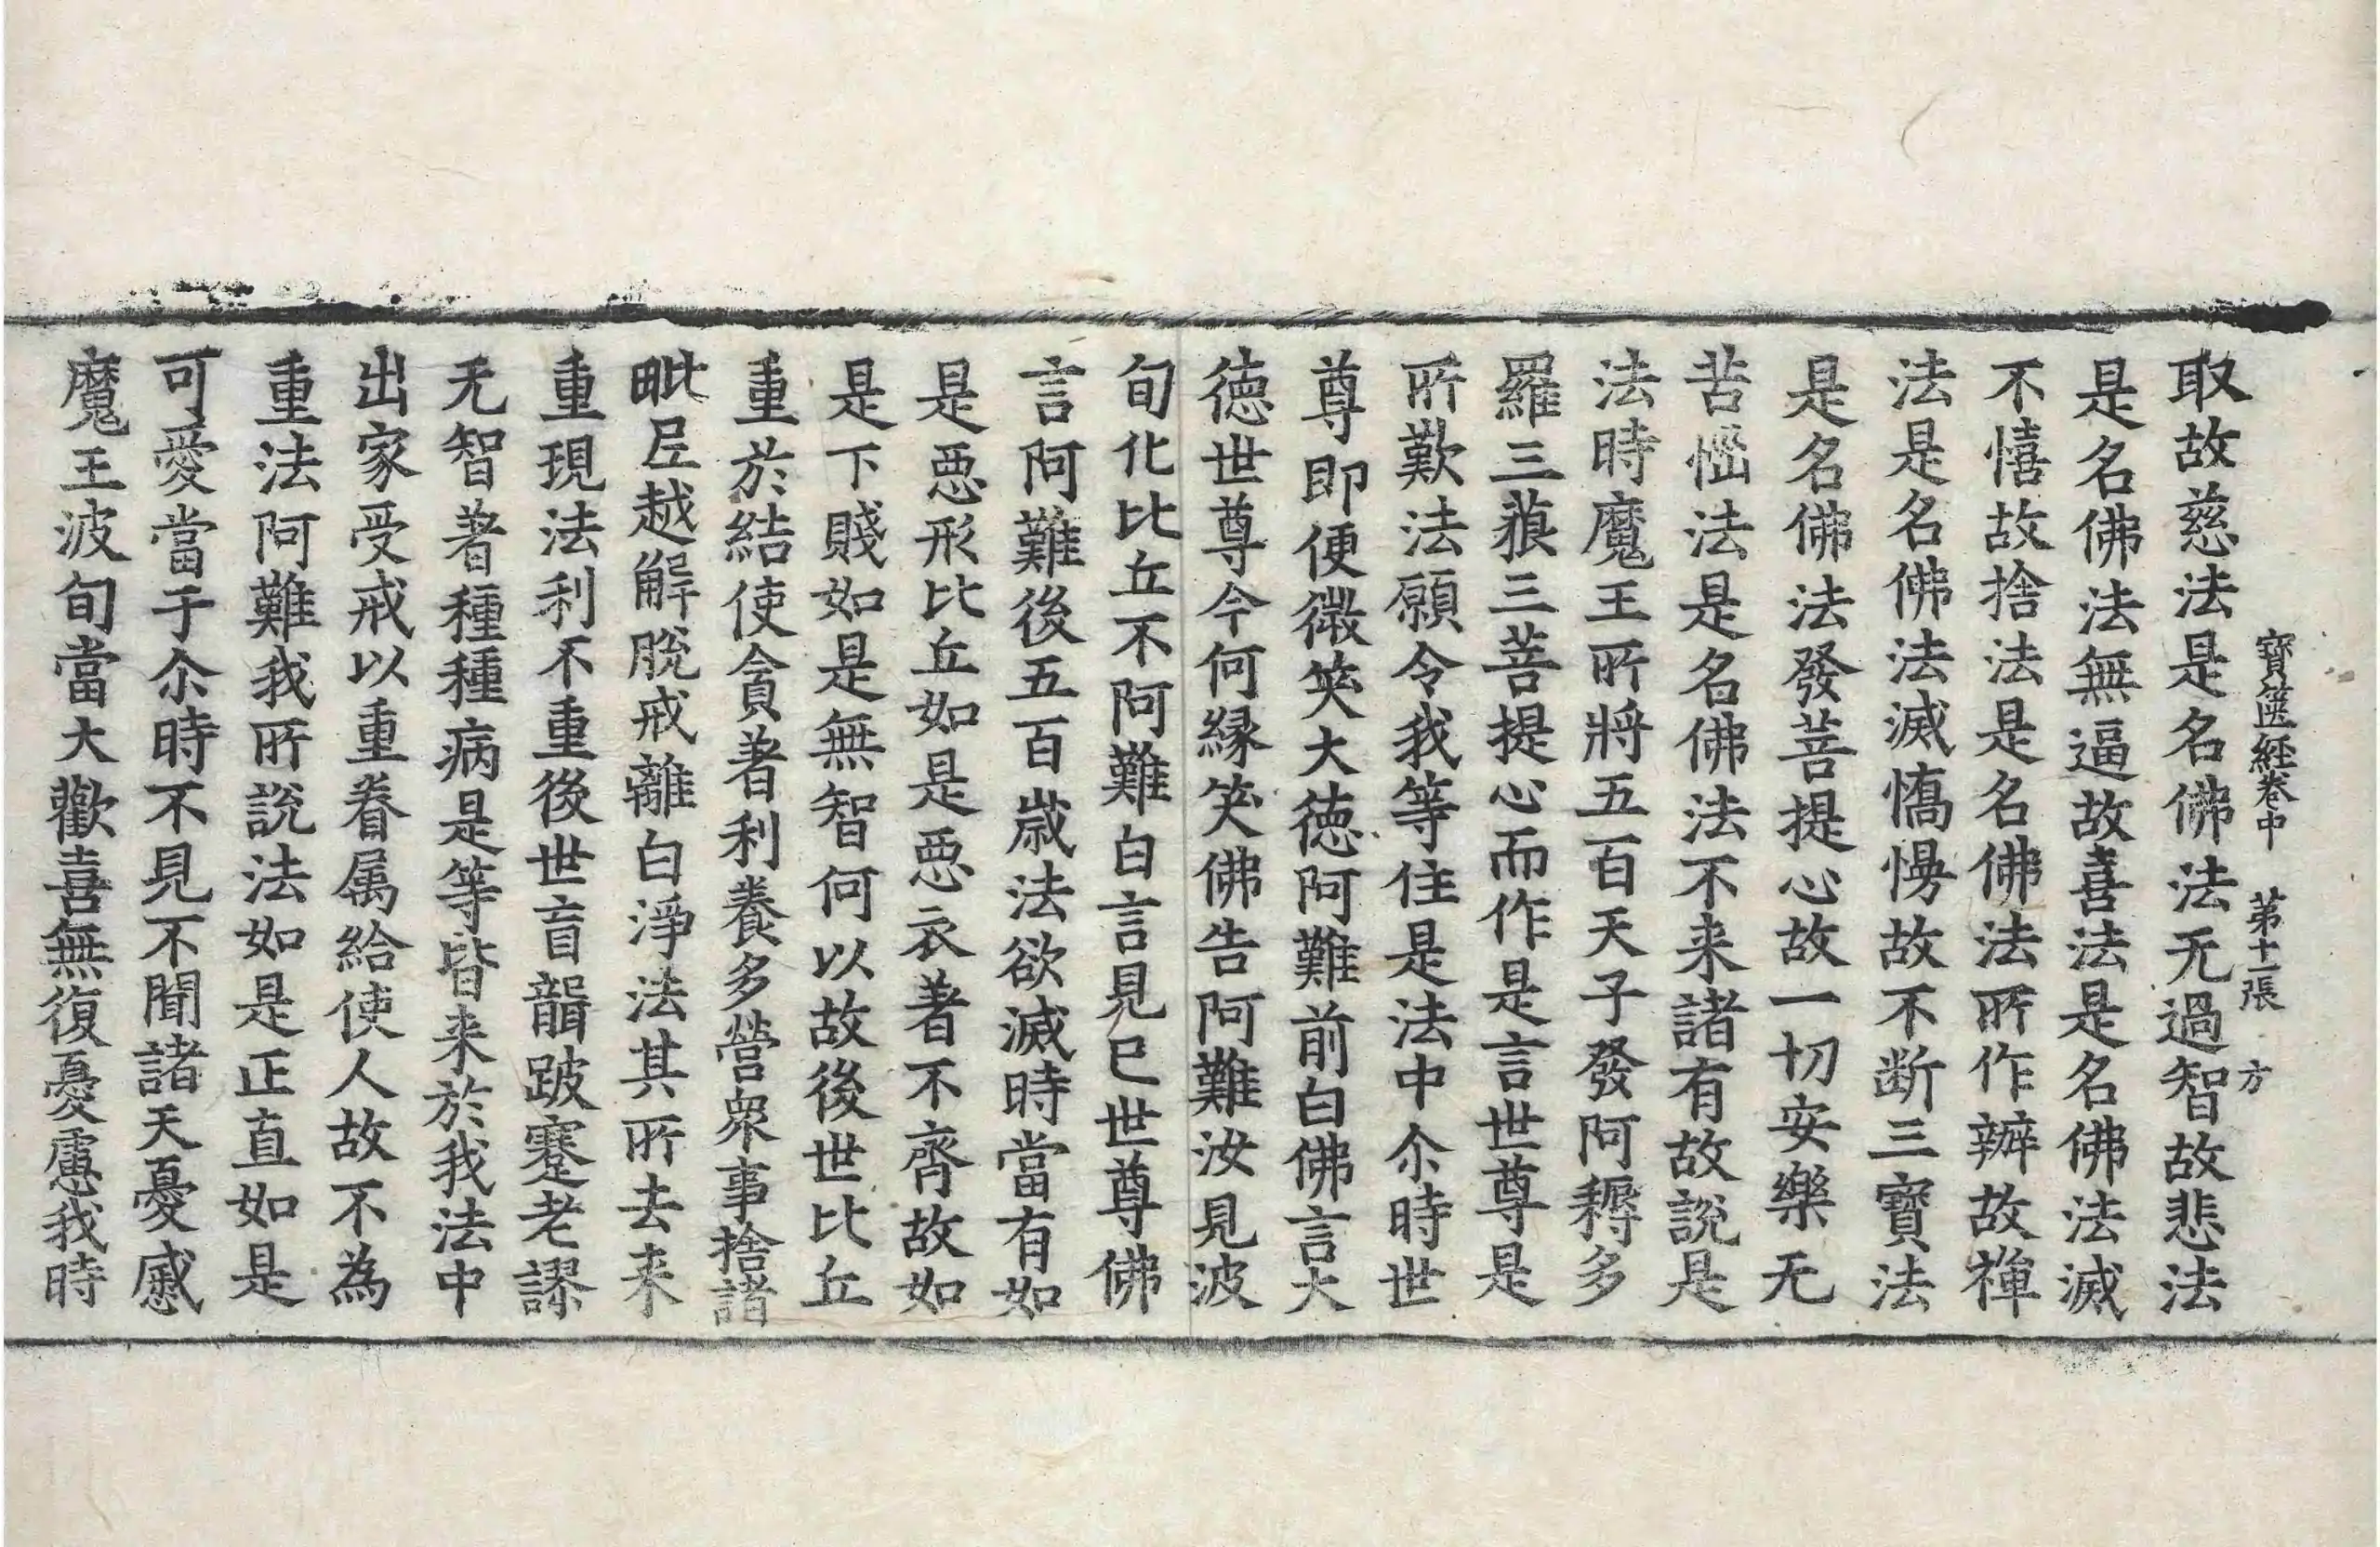 寶篋経卷中 第十一張 方
取故慈法是名佛法无過智故悲法
是名佛法無逼故喜法是名佛法滅
不憘故捨法是名佛法所作辦故禪
法是名佛法滅憍慢故不断三寶法
是名佛法發菩提心故一切安樂无
苦惱法是名佛法不来諸有故説是
法時魔王所將五百天子發阿耨多
羅三藐三菩提心而作是言世尊是
所歎法願令我等住是法中尒時世
尊即便微笑大徳阿難前白佛言大
徳世尊今何縁笑佛告阿難汝見波
旬化比丘不阿難白言見已世尊佛
言阿難後五百歳法欲滅時當有如
是惡形比丘如是惡衣著不齊故如
是下賤如是無智何以故後世比丘
重於結使貪著利養多營衆事捨諸
毗尼越解脫戒離白淨法其所去来
重現法利不重後世盲聾跛蹇老謬
无智著種種病是等皆来於我法中
出家受戒以重眷属給使人故不為
重法阿難我所説法如是正直如是
可愛當于尒時不見不聞諸天憂慼
魔王波旬當大歡喜無復憂慮我時